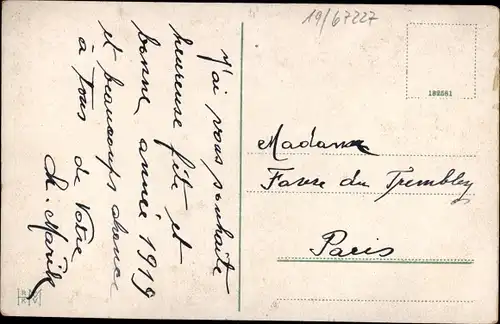 19/67227
J'ai vous souhaite
heureuse fête et
bonne année 1919
et beaucoups chance
à tous de Votre
182561
Madame
Favre du Trembley
Paris